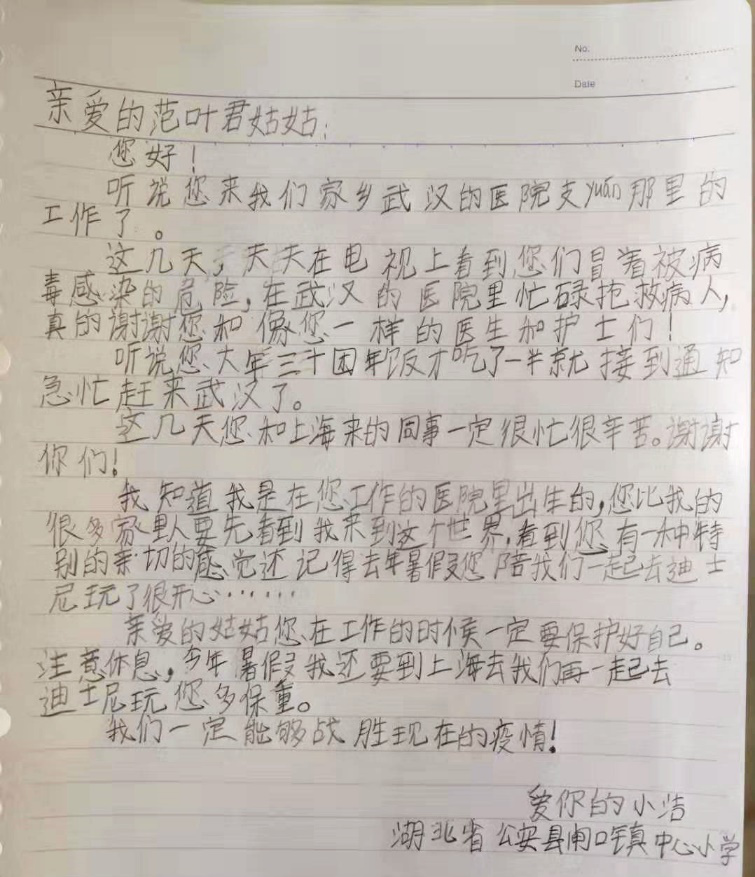 No.
Date
亲爱的范叶君姑姑：
您好！
听说您来我们家乡武汉的医院支yuán那里的
工作了。
这几天，天天在电视上看到您们冒着被病
毒感染的危险，在武汉的医院里忙碌抢救病人，
真的谢谢您和像您一样的医生和护士们！
听说您大年三十团年饭才吃了一半就接到通知
急忙赶来武汉了。
这几天您和上海来的同事一定很忙很辛苦。谢谢
你们！
我知道我是在您工作的医院里出生的，您比我的
很多家里人要先看到我来到这个世界，看到您有一种特
别的亲切的感觉还记得去年暑假您陪我们一起去迪士
尼玩了很开心……
亲爱的姑姑您在工作的时候一定要保护好自己。
注意休息，今年暑假我还要到上海去我们再一起去
迪士尼玩您多保重。
我们一定能够战胜现在的疫情！
爱你的小洁
湖北省公安县闸口镇中心小学